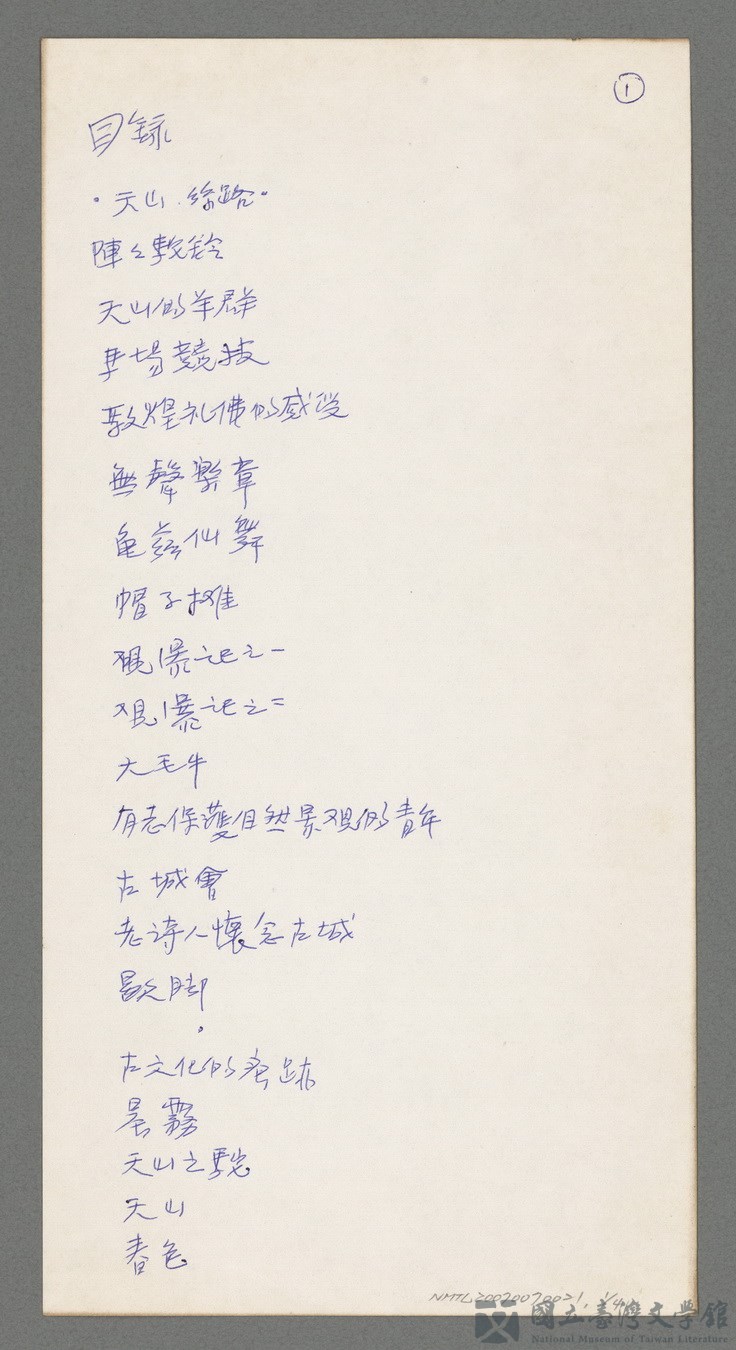 ①
目錄
·天山.絲路·
陣々駝鈴
天山的羊群
馬場競技
敦煌礼佛的感受
無聲樂章
龟茲仙舞
帽子攤
觀瀑记之一
观瀑记之二
大毛牛
有志保護自然景观的青年
古城會
老诗人懷念古城
歇脚
古文化的痕跡
晨霧
天山之駝
天山
春色
NMTL20020070021, 1/4
國立臺灣文學館
National Museum of Taiwan Literature